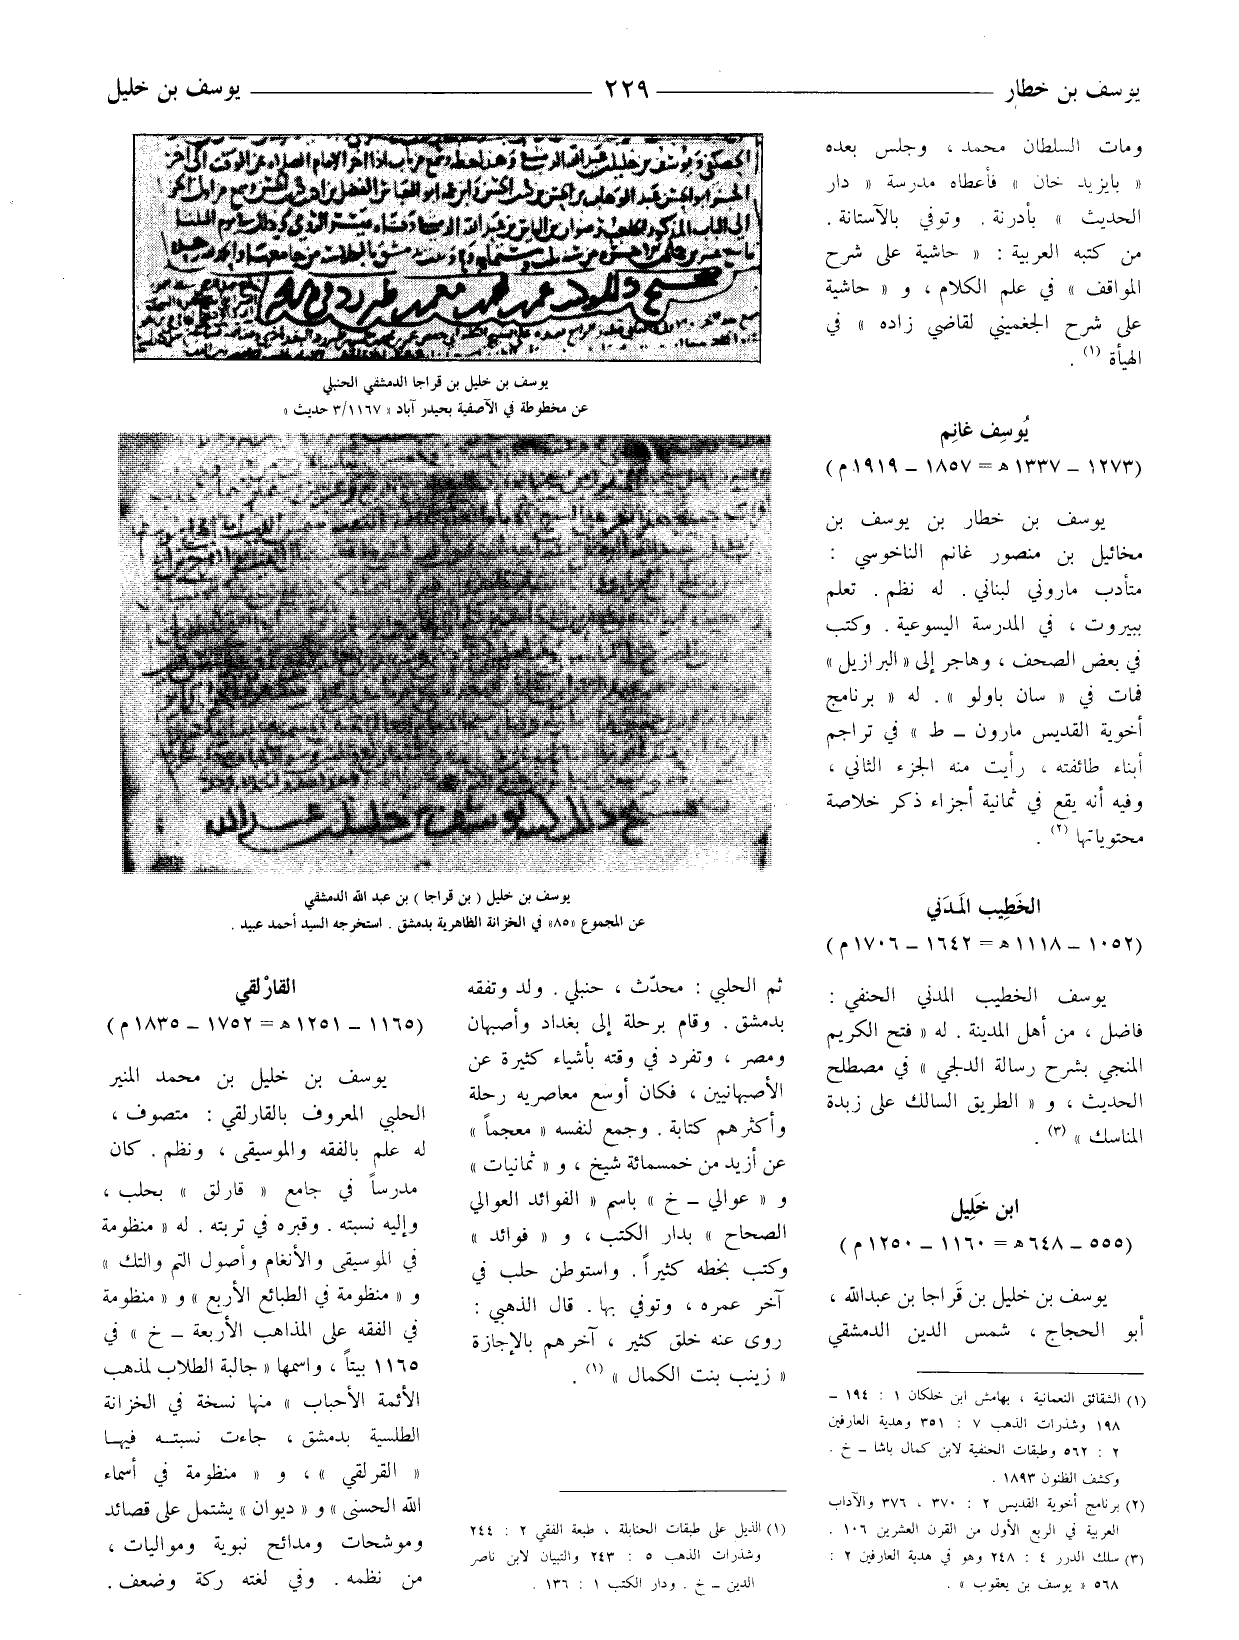 يوسف بن خطار ——— ٢٢٩ ——— يوسف بن خليل
ومات السلطان محمد ، وجلس بعده
« بايزيد خان » فأعطاه مدرسة « دار
الحديث » بأدرنة . وتوفي بالآستانة .
من كتبه العربية : « حاشية على شرح
المواقف » في علم الكلام ، و « حاشية
على شرح الجغميني لقاضي زاده » في
الهيأة (١) .
يُوسِف غانِم
(١٢٧٣ – ١٣٣٧ هـ = ١٨٥٧ – ١٩١٩ م)
يوسف بن خطار بن يوسف بن
مخائيل بن منصور غانم الناخوسي :
متأدب ماروني لبناني . له نظم . تعلم
ببيروت ، في المدرسة اليسوعية . وكتب
في بعض الصحف ، وهاجر إلى « البرازيل »
فمات في « سان باولو » . له « برنامج
أخوية القديس مارون – ط » في تراجم
أبناء طائفته ، رأيت منه الجزء الثاني ،
وفيه أنه يقع في ثمانية أجزاء ذكر خلاصة
محتوياتها (٢) .
الخَطِيب المَدَني
(١٠٥٢ – ١١١٨ هـ = ١٦٤٢ – ١٧٠٦ م)
يوسف الخطيب المدني الحنفي :
فاضل ، من أهل المدينة . له « فتح الكريم
المنجي بشرح رسالة الدلجي » في مصطلح
الحديث ، و « الطريق السالك على زبدة
المناسك » (٣) .
ابن خَلِيل
(٥٥٥ – ٦٤٨ هـ = ١١٦٠ – ١٢٥٠ م)
يوسف بن خليل بن قَراجا بن عبدالله ،
أبو الحجاج ، شمس الدين الدمشقي
(١) الشقائق النعمانية ، بهامش ابن خلكان ١ : ١٩٤ –
١٩٨ وشذرات الذهب ٧ : ٣٥١ وهدية العارفين
٢ : ٥٦٢ وطبقات الحنفية لابن كمال باشا – خ .
وكشف الظنون ١٨٩٣ .
(٢) برنامج أخوية القديس ٢ : ٣٧٠ ، ٣٧٦ والآداب
العربية في الربع الأول من القرن العشرين ١٠٦ .
(٣) سلك الدرر ٤ : ٢٤٨ وهو في هدية العارفين ٢ :
٥٦٨ « يوسف بن يعقوب » .
يوسف بن خليل بن قراجا الدمشقي الحنبلي
عن مخطوطة في الآصفية بحيدر آباد « ٣/١١٦٧ حديث »
يوسف بن خليل ( بن قراجا ) بن عبد الله الدمشقي
عن المجموع «٨٥» في الخزانة الظاهرية بدمشق . استخرجه السيد أحمد عبيد .
ثم الحلبي : محدّث ، حنبلي . ولد وتفقه
بدمشق . وقام برحلة إلى بغداد وأصبهان
ومصر ، وتفرد في وقته بأشياء كثيرة عن
الأصبهانيين ، فكان أوسع معاصريه رحلة
وأكثرهم كتابة . وجمع لنفسه « معجماً »
عن أزيد من خمسمائة شيخ ، و « ثمانيات »
و « عوالي – خ » باسم « الفوائد العوالي
الصحاح » بدار الكتب ، و « فوائد »
وكتب بخطه كثيراً . واستوطن حلب في
آخر عمره ، وتوفي بها . قال الذهبي :
روى عنه خلق كثير ، آخرهم بالإجازة
« زينب بنت الكمال » (١) .
(١) الذيل على طبقات الحنابلة ، طبعة الفقي ٢ : ٢٤٤
وشذرات الذهب ٥ : ٢٤٣ والتبيان لابن ناصر
الدين – خ . ودار الكتب ١ : ١٣٦ .
القارْلقي
(١١٦٥ – ١٢٥١ هـ = ١٧٥٢ – ١٨٣٥ م)
يوسف بن خليل بن محمد المنير
الحلبي المعروف بالقارلقي : متصوف ،
له علم بالفقه والموسيقى ، ونظم . كان
مدرساً في جامع « قارلق » بحلب ،
وإليه نسبته . وقبره في تربته . له « منظومة
في الموسيقى والأنغام وأصول التم والتك »
و « منظومة في الطبائع الأربع » و « منظومة
في الفقه على المذاهب الأربعة – خ » في
١١٦٥ بيتاً ، واسمها « جالبة الطلاب لمذهب
الأئمة الأحباب » منها نسخة في الخزانة
الطلسية بدمشق ، جاءت نسبته فيها
« القرلقي » ، و « منظومة في أسماء
الله الحسنى » و « ديوان » يشتمل على قصائد
وموشحات ومدائح نبوية ومواليات ،
من نظمه . وفي لغته ركة وضعف .